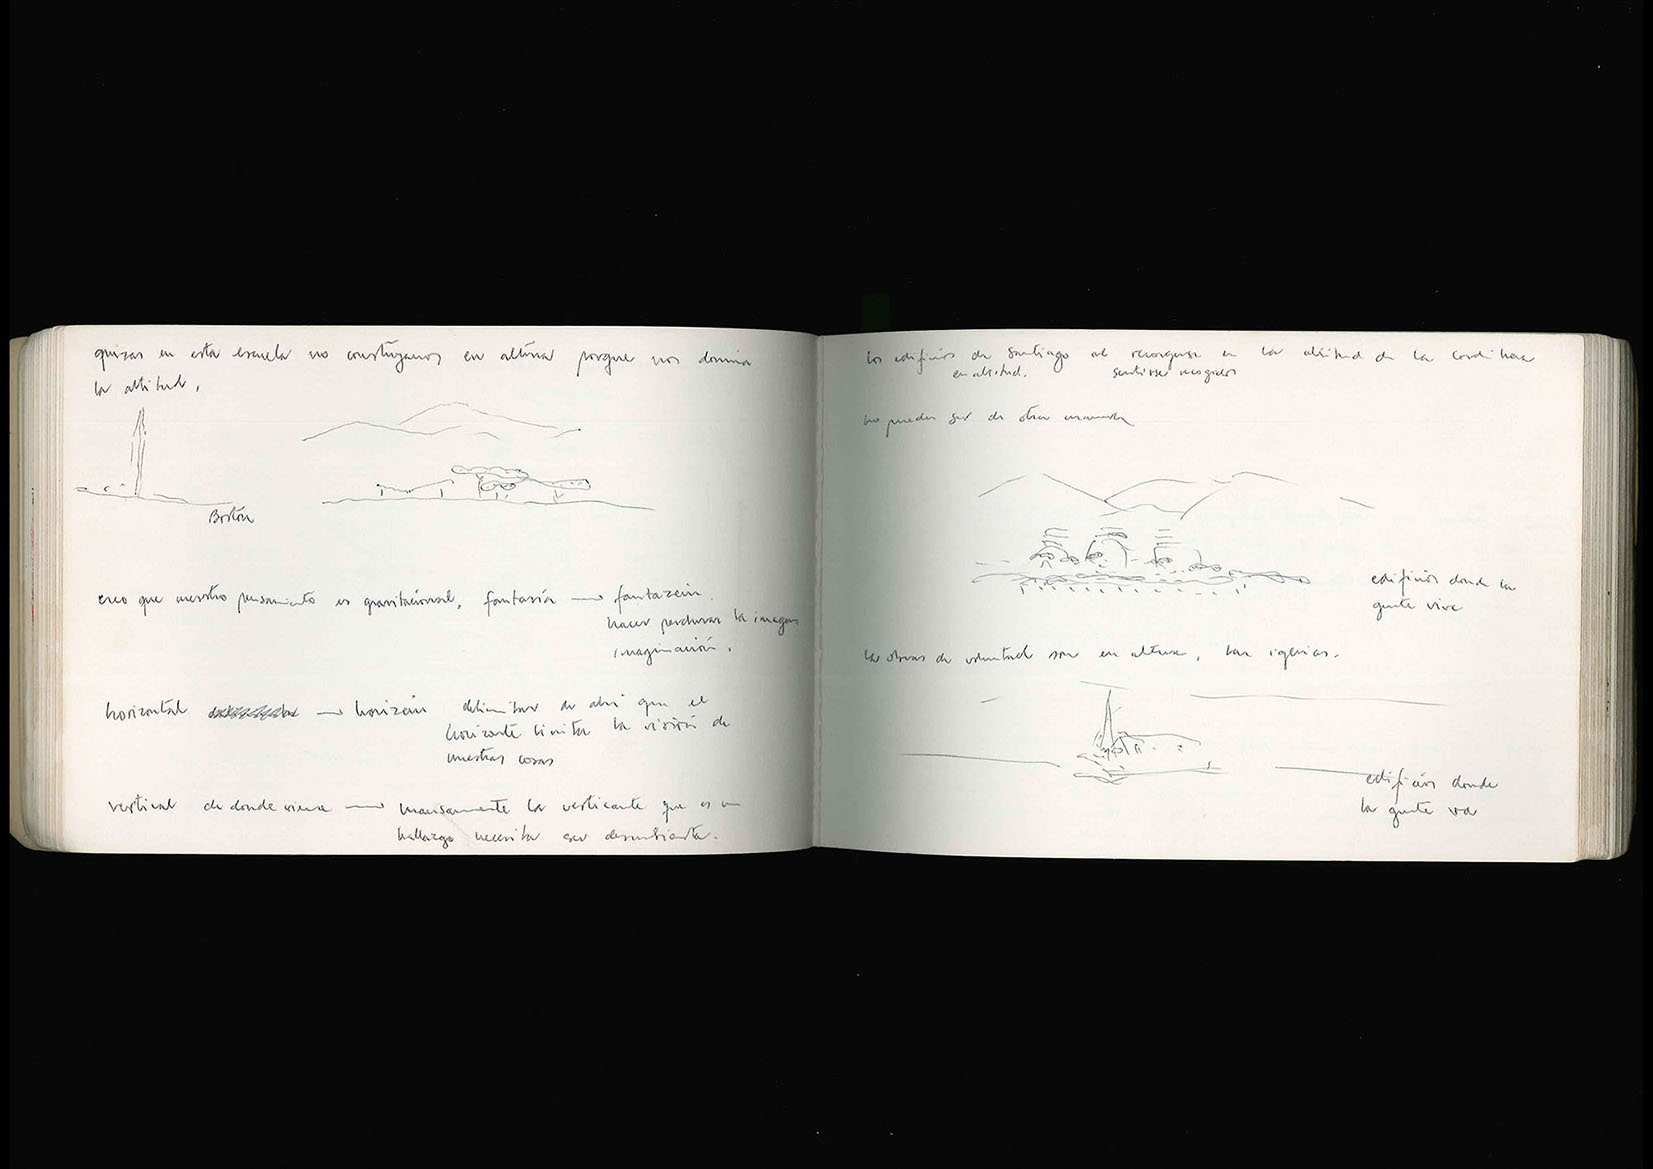 quizas en esta escuela no construyamos en altura porque nos domina
la altitud.
Boston
creo que nuestro pensamiento es gravitacional, fantasía → fantazein.
hacer perdurar la imagen
imaginación.
horizontal → horizein delimitar de ahí que el
horizonte limita la visión de
nuestras cosas
vertical de donde viene → mansamente la verticante que es un
hallazgo necesita ser descubierta.
los edificios de Santiago al recogerse en la altitud de la cordillera
en altitud. sentirse recogidos
no pueden ser de otra manera
edificios donde la
gente vive
las obras de voluntad son en altura, las iglesias.
edificios donde
la gente va